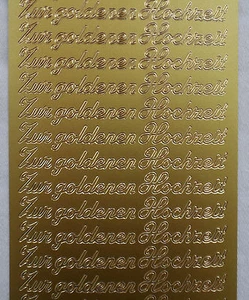 Zur goldenen Hochzeit
Zur goldenen Hochzeit
Zur goldenen Hochzeit
Zur goldenen Hochzeit
Zur goldenen Hochzeit
Zur goldenen Hochzeit
Zur goldenen Hochzeit
Zur goldenen Hochzeit
Zur goldenen Hochzeit
Zur goldenen Hochzeit
Zur goldenen Hochzeit
Zur goldenen Hochzeit